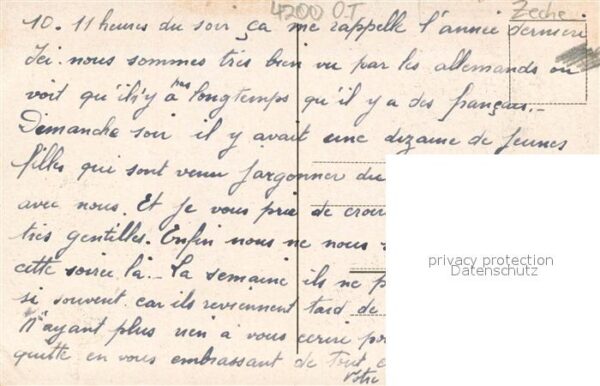 4200 O.T
Zeche
10. 11 heures du soir, ça me rappelle l'année dernière
Ici nous sommes très bien vu par les allemands on
voit qu'il n'y a pas longtemps qu'il y a des français.
Dimanche soir il y avait une dizaine de jeunes
filles qui sont venu jargonner du
avec nous. Et je vous prie de croire
très gentilles. Enfin nous ne nous
cette soirée là. La semaine ils ne
si souvent car ils reviennent tard de
N'ayant plus rien à vous écrire
quitte en vous embrassant de tout
Votre
privacy protection
Datenschutz